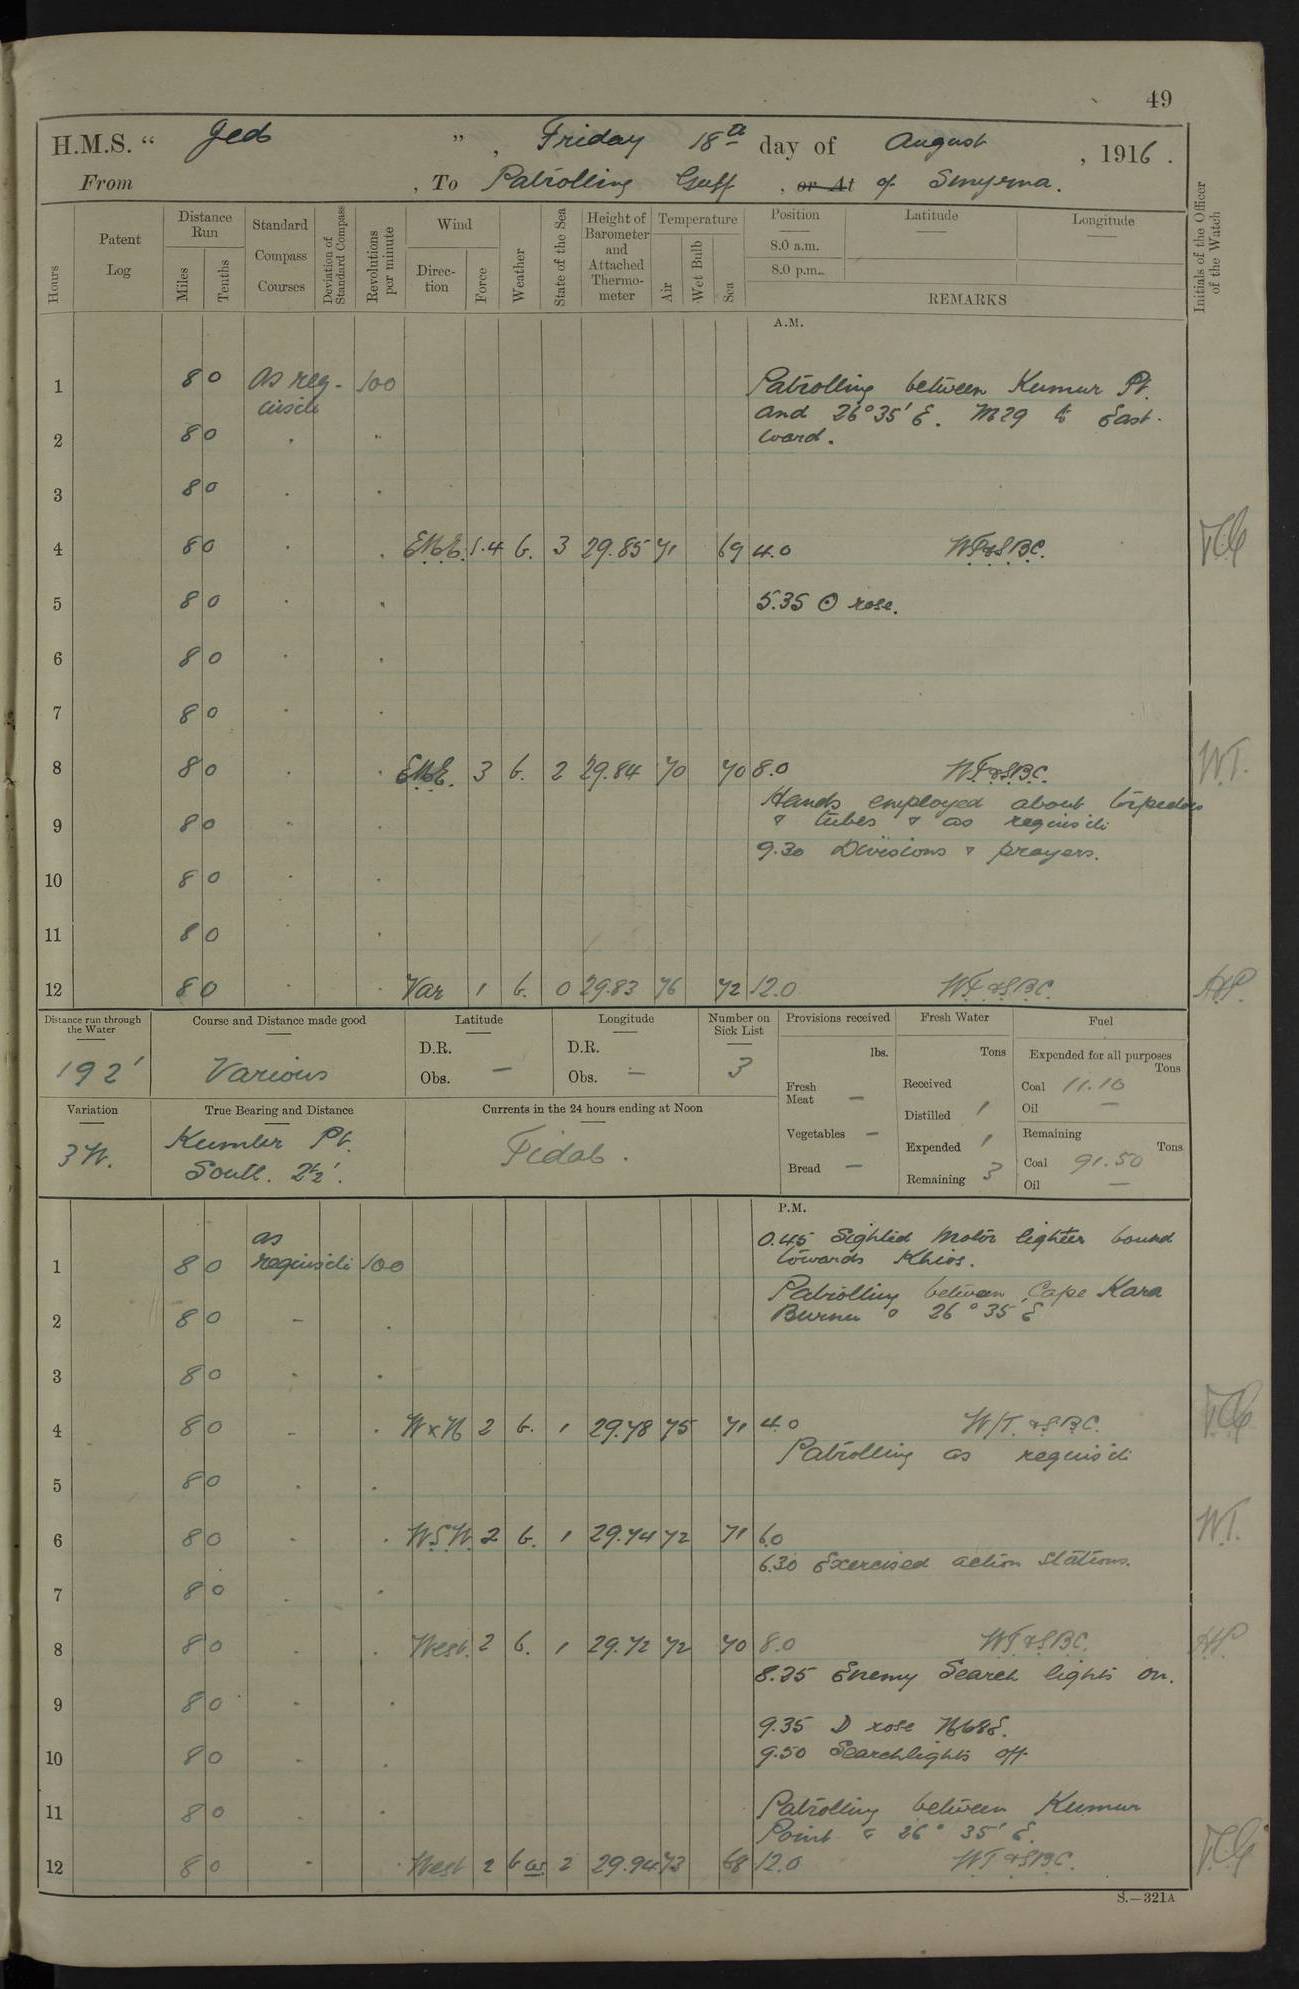 49
H.M.S. " Jed ", Friday 18th day of August, 1916.
From , To Patrolling Gulf , or At of Smyrna.
Hours
Patent Log
Distance Run
Miles
Tenths
Standard Compass Courses
Deviation of Standard Compass
Revolutions per minute
Wind
Direction
Force
Weather
State of the Sea
Height of Barometer and Attached Thermometer
Temperature
Air
Wet Bulb
Sea
Position
Latitude
Longitude
8.0 a.m.
8.0 p.m.
REMARKS
Initials of the Officer of the Watch
A.M.
1 8 0 As req- 100 Patrolling between Kumur Pt.
uisite and 26°35' E. M29 to East-
2 8 0 " " ward.
3 8 0 " "
4 8 0 " " 3.4 b. 3 29.85 71 69 4.0 WT&SBC.
5 8 0 " " 5.35 ⊙ rose.
6 8 0 " "
7 8 0 " "
8 8 0 " " 3 b. 2 29.84 70 70 8.0 WT&SBC. W.T.
Hands employed about torpedoes
9 8 0 " " & tubes & as requisite
9.30 Divisions & prayers.
10 8 0 " "
11 8 0 "
12 8 0 " " Var 1 b. 0 29.83 76 72 12.0 WT&SBC.
Distance run through the Water
192'
Course and Distance made good
Various
Latitude
D.R.
Obs. —
Longitude
D.R.
Obs. —
Number on Sick List
3
Provisions received
lbs.
Fresh Meat —
Vegetables —
Bread —
Fresh Water
Tons
Received
Distilled 1
Expended 1
Remaining 3
Fuel
Expended for all purposes
Tons
Coal 11.10
Oil —
Remaining
Tons
Coal 91.50
Oil —
Variation
3 W.
True Bearing and Distance
Kumur Pt.
South. 2½'.
Currents in the 24 hours ending at Noon
Tidal.
P.M.
0.45 Sighted motor lighter bound
1 8 0 as requisite 100 towards Khios.
Patrolling between Cape Kara
2 8 0 " " Burnu & 26°35' E
3 8 0 " "
4 8 0 " " W x N 2 b. 1 29.78 75 71 4.0 W/T. &SBC.
Patrolling as requisite
5 8 0 " "
6 8 0 " " WSW. 2 b. 1 29.74 72 71 6.0 W.T.
6.30 Exercised action stations.
7 8 0 " "
8 8 0 " " West. 2 b. 1 29.72 72 70 8.0 WT&SBC.
8.25 Enemy Search lights on.
9 8 0 " "
9.35 D rose N68E.
10 8 0 " " 9.50 Searchlights off.
11 8 0 " " Patrolling between Kumur
Point & 26° 35' E.
12 8 0 " " West 2 b 2 29.94 73 68 12.0 WT&SBC.
S.—321A